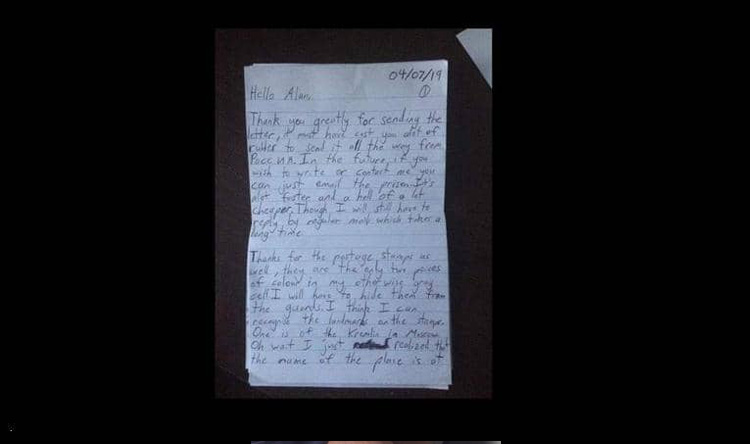 04/07/19
①
Hello Alan,
Thank you greatly for sending the
letter, it must have cost you alot of
rubles to send it all the way from
. In the future, if you
wish to write or contact me you
can just email the prison. It's
alot faster and a hell of a lot
cheaper. Though I will still have to
reply by regular mail which takes a
long time
Thanks for the postage stamps as
well, they are the only two pieces
of colour in my otherwise gray
cell I will have to hide them from
the guards. I think I can
recognise the landmarks on the stamps
One is of the Kremlin in Moscow
Oh wait I just realized that
the name of the place is at